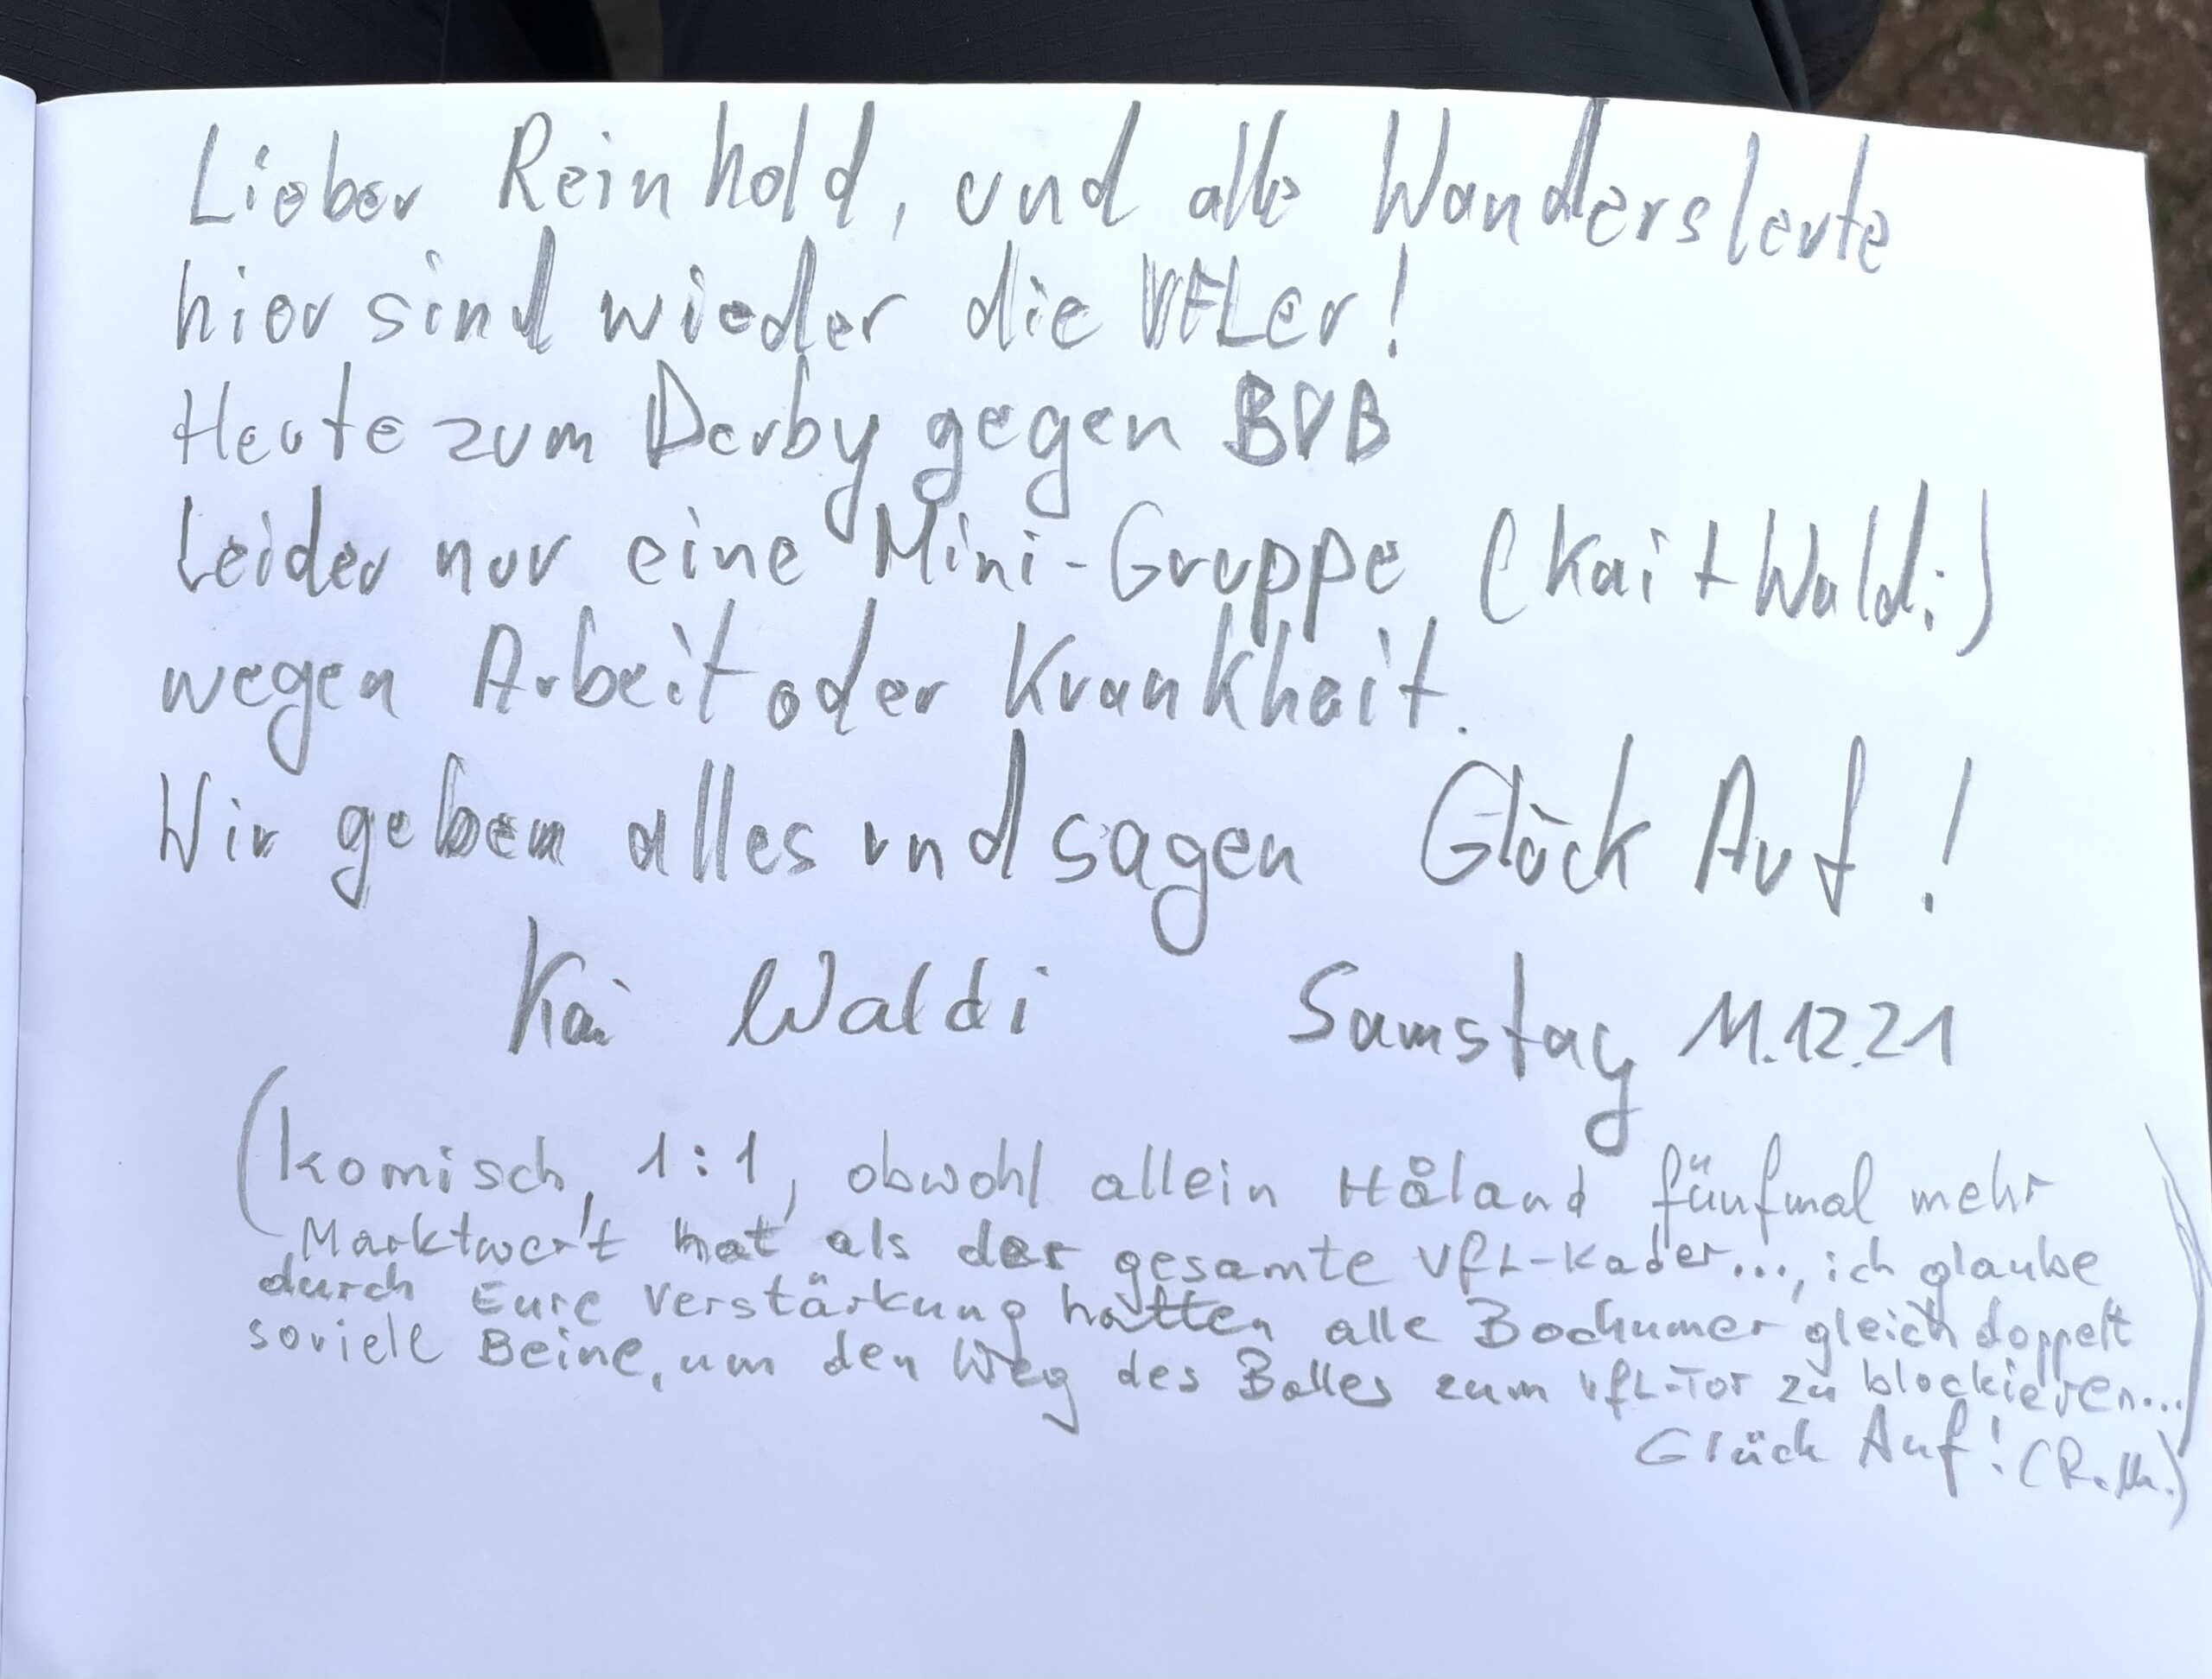 Lieber Reinhold, und alle Wandersleute
hier sind wieder die VFLer!
Heute zum Derby gegen BVB
Leider nur eine Mini-Gruppe (Kai + Waldi)
wegen Arbeit oder Krankheit.
Wir geben alles und sagen Glück Auf!
Kai Waldi Samstag 11.12.21
(komisch, 1:1, obwohl allein Håland fünfmal mehr
Marktwert hat als der gesamte VfL-Kader..., ich glaube
durch Eure Verstärkung hatten alle Bochumer gleich doppelt
soviele Beine, um den Weg des Balles zum VfL-Tor zu blockieren...
Glück Auf! (R.M.)